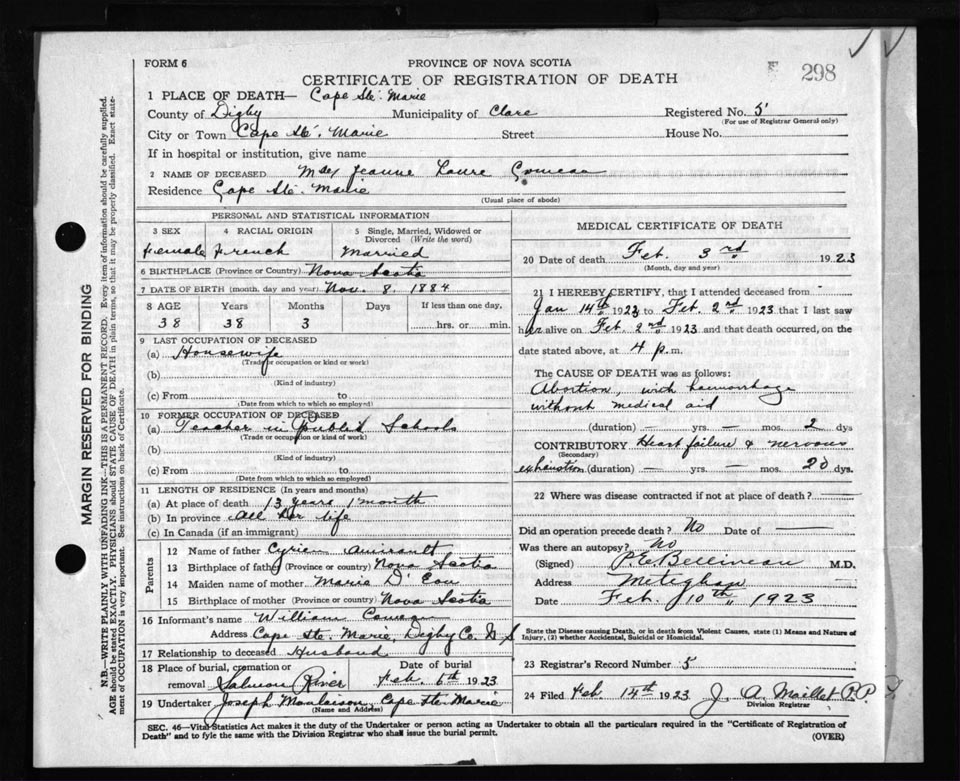 FORM 6
PROVINCE OF NOVA SCOTIA
298
CERTIFICATE OF REGISTRATION OF DEATH
1 PLACE OF DEATH— Cape Ste. Marie
County of Digby Municipality of Clare Registered No. 5
(For use of Registrar General only)
City or Town Cape Ste. Marie Street House No.
If in hospital or institution, give name
2 NAME OF DECEASED Jeanne Laure Comeau
Residence Cape Ste. Marie
(Usual place of abode)
PERSONAL AND STATISTICAL INFORMATION
3 SEX 4 RACIAL ORIGIN 5 Single, Married, Widowed or Divorced (Write the word)
Female French Married
6 BIRTHPLACE (Province or Country) Nova Scotia
7 DATE OF BIRTH (month, day and year) Nov. 8. 1884
8 AGE Years Months Days If less than one day,
38 38 3 hrs. or min.
9 LAST OCCUPATION OF DECEASED
(a) Housewife
(Trade or occupation or kind or work)
(b)
(Kind of industry)
(c) From to
(Date from which to which so employed)
10 FORMER OCCUPATION OF DECEASED
(a) Teacher in Public Schools
(Trade or occupation or kind of work)
(b)
(Kind of industry)
(c) From to
(Date from which to which so employed)
11 LENGTH OF RESIDENCE (In years and months)
(a) At place of death 13 years 1 month
(b) In province All her life
(c) In Canada (if an immigrant)
Parents
12 Name of father Cyrien Amirault
13 Birthplace of father (Province or country) Nova Scotia
14 Maiden name of mother Marie D'Eon
15 Birthplace of mother (Province or country) Nova Scotia
16 Informant's name William Comeau
Address Cape Ste. Marie, Digby Co. N S
17 Relationship to deceased Husband
18 Place of burial, cremation or removal Salmon River Date of burial Feb. 6th 1923
19 Undertaker Joseph Cape Ste. Marie
(Name and Address)
MEDICAL CERTIFICATE OF DEATH
20 Date of death Feb. 3rd 1923
(Month, day and year)
21 I HEREBY CERTIFY, that I attended deceased from
Jan 14th 1923 to Feb. 2nd 1923 that I last saw
her alive on Feb. 2nd 1923 and that death occurred, on the
date stated above, at 4 p.m.
The CAUSE OF DEATH was as follows:
Abortion, with haemorrhage
without medical aid
(duration) — yrs. — mos. 2 dys
CONTRIBUTORY Heart failure & nervous
(Secondary)
exhaustion (duration) — yrs. — mos. 20 dys.
22 Where was disease contracted if not at place of death?
Did an operation precede death? No Date of
Was there an autopsy? No
(Signed) P.E. Belliveau M.D.
Address Meteghan
Date Feb. 10th, 1923
State the Disease causing Death, or in death from Violent Causes, state (1) Means and Nature of
Injury, (2) whether Accidental, Suicidal or Homicidal.
23 Registrar's Record Number 5
24 Filed Feb. 14th 1923 J. A. Maillet P.P.
Division Registrar
SEC. 46—Vital Statistics Act makes it the duty of the Undertaker or person acting as Undertaker to obtain all the particulars required in the "Certificate of Registration of
Death" and to fyle the same with the Division Registrar who shall issue the burial permit. (OVER)
MARGIN RESERVED FOR BINDING
N.B.—WRITE PLAINLY WITH UNFADING INK—THIS IS A PERMANENT RECORD. Every item of information should be carefully supplied.
AGE should be stated EXACTLY. PHYSICIANS should STATE CAUSE OF DEATH in plain terms, so that it may be properly classified. Exact state-
ment of OCCUPATION is very important. See instructions on back of Certificate.